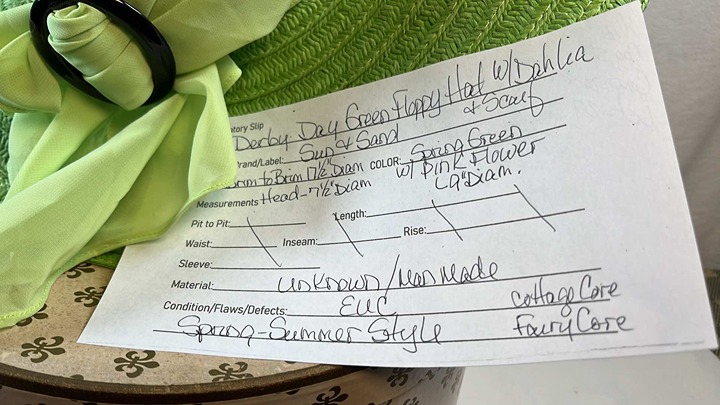 tory Slip
Derby Day Green Floppy Hat W/ Dahlia
& Scarf
rand/Label: Sun & Sand COLOR: Spring Green
Brim to Brim 17½" Diam W/ Pink Flower
Measurements Head-7½" Diam L9" Diam.
Pit to Pit: Length:
Waist: Inseam: Rise:
Sleeve:
Material: Unknown/Man Made
Condition/Flaws/Defects: EUC Cottage Core
Spring-Summer Style Fairy Core